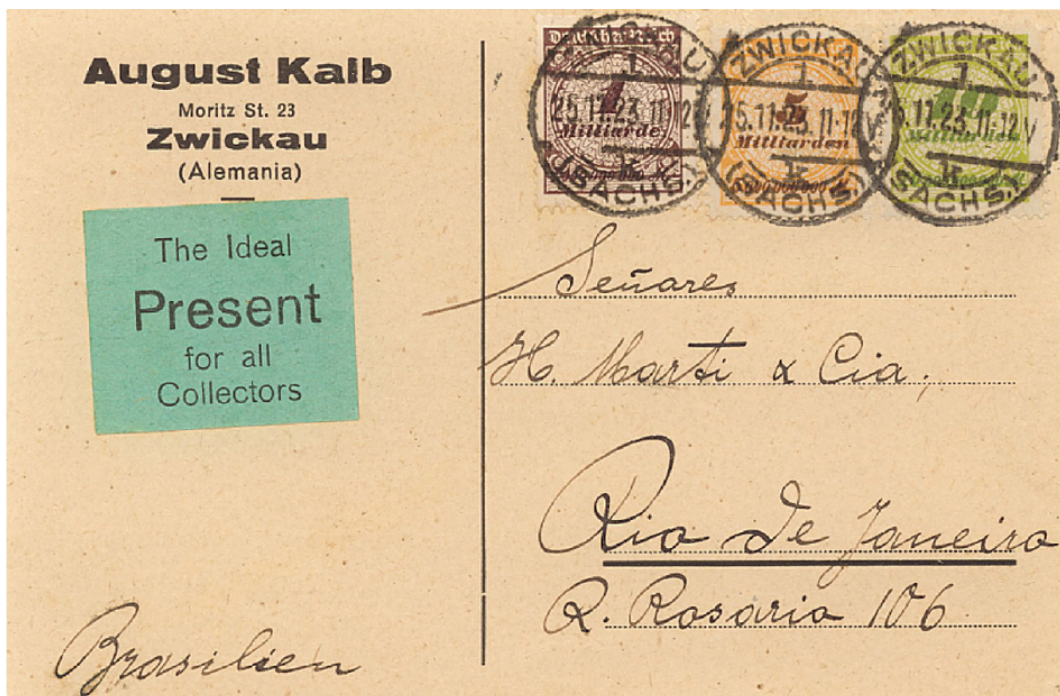 August Kalb
Moritz St. 23
Zwickau
(Alemania)
The Ideal
Present
for all
Collectors
Deutsches Reich
1
Milliarde
5
Milliarden
5 000 000 000 M.
10
ZWICKAU
1
25.11.23. 11-12 V
k
(SACHS.)
ZWICKAU
1
25.11.23. 11-12 V
k
(SACHS.)
ZWICKAU
1
25.11.23. 11-12 V
k
(SACHS.)
Señares
H. Marti & Cia,
Rio de Janeiro
R. Rosario 106
Brasilien